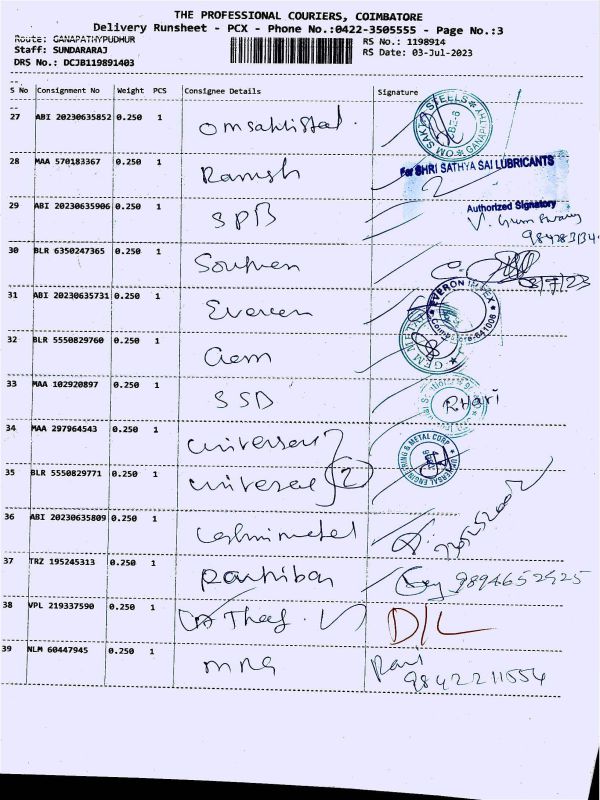 THE PROFESSIONAL COURIERS, COIMBATORE
Delivery Runsheet - PCX - Phone No.:0422-3505555 - Page No.:3
Route: GANAPATHYPUDHUR RS No.: 1198914
Staff: SUNDARARAJ RS Date: 03-Jul-2023
DRS No.: DCJB119891403
S No Consignment No Weight PCS Consignee Details Signature
27 ABI 20230635852 0.250 1 Omsakti steel
28 MAA 570183367 0.250 1 Ramesh
For SHRI SATHYA SAI LUBRICANTS
29 ABI 20230635906 0.250 1 SPB
Authorized Signatory
30 BLR 6350247365 0.250 1
3/7/23
31 ABI 20230635731 0.250 1 Everon
EVERON IMPEX
32 BLR 5550829760 0.250 1 Gem
33 MAA 102920897 0.250 1 SSD RHari
34 MAA 297964543 0.250 1 universal
UNIVERSAL ENGINEERING & METAL CORP
35 BLR 5550829771 0.250 1 universal 2
36 ABI 20230635809 0.250 1
37 TRZ 195245313 0.250 1 Parthiban 9894652525
38 VPL 219337590 0.250 1 D/L
39 NLM 60447945 0.250 1 MRG Ravi
9842211554